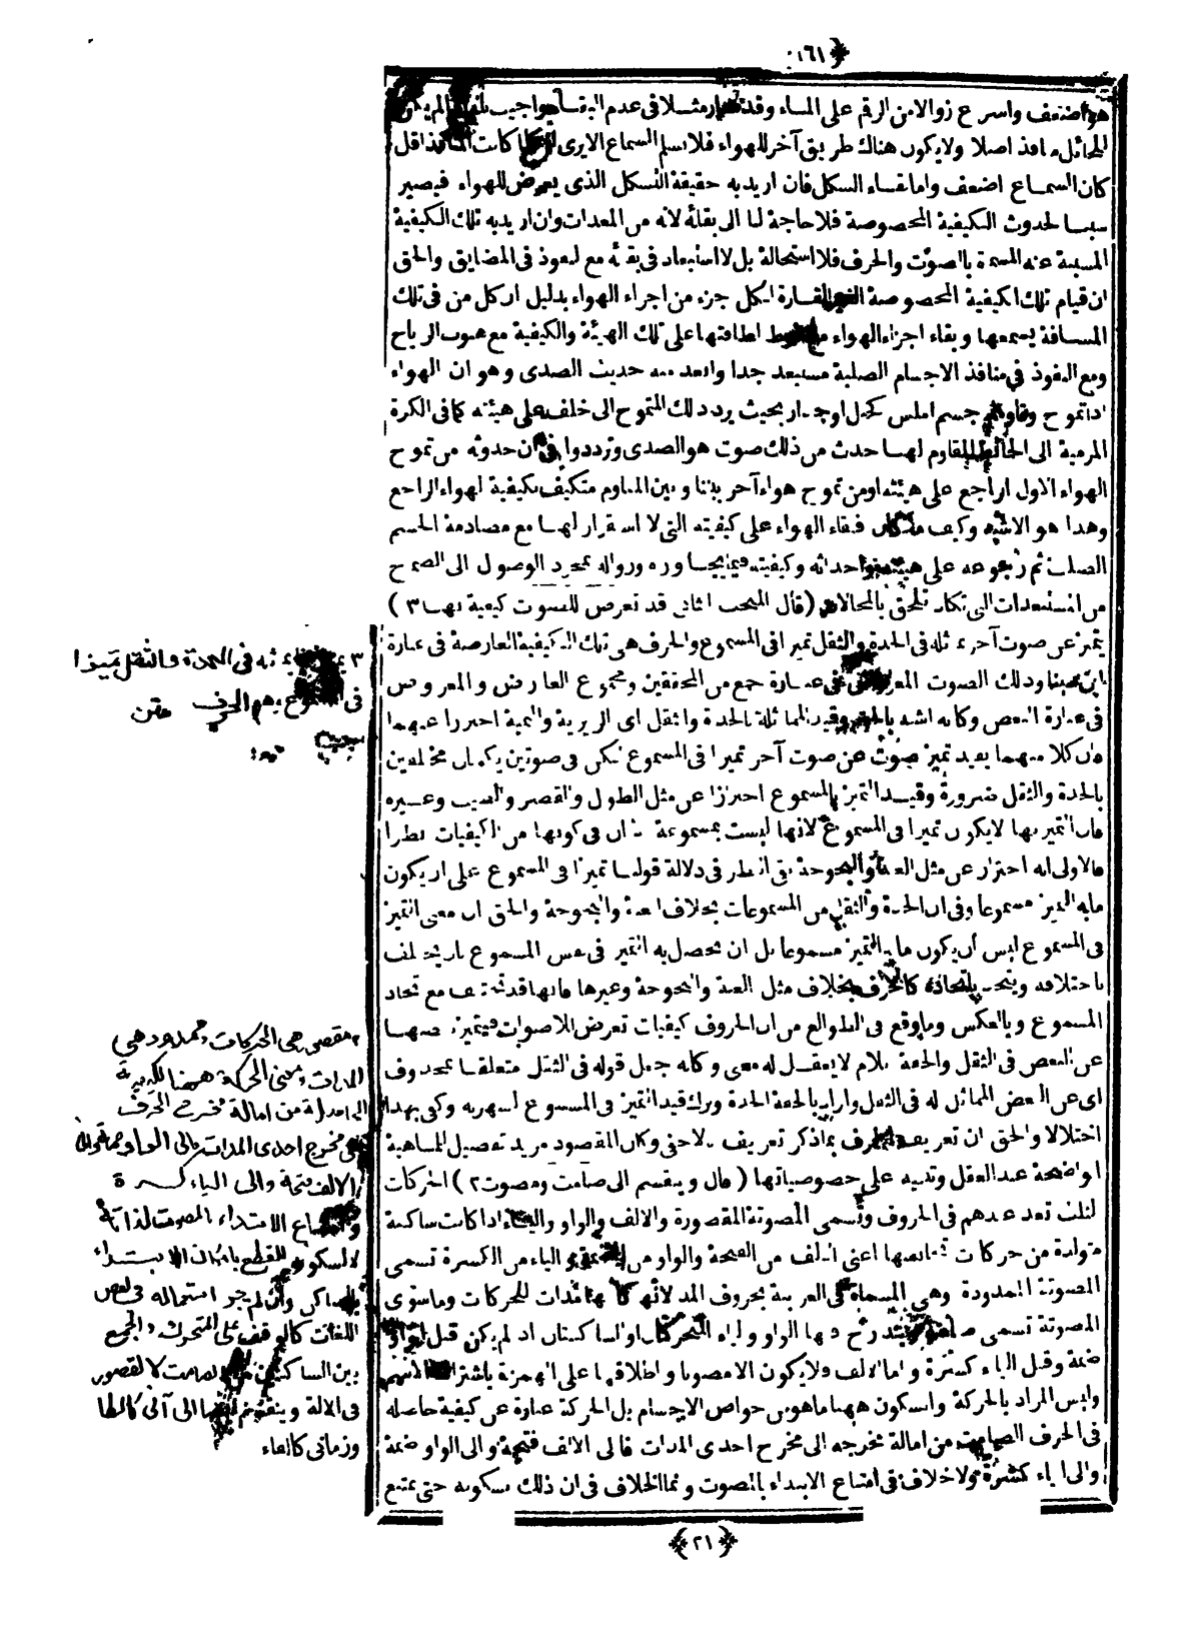 ١٦١
اضعف واسرع زوالا من الرقم على الماء وقد مثلا فى عدم
اصلا ولا يكون هناك طريق آخر للهواء فلا نسلم السماع الا يرى كانت اقل
كان السماع اضعف واما بقاء الشكل فان اريد به حقيقة التشكل الذى يعرض للهواء فيصير
سببا لحدوث الكيفية المخصوصة فلا حاجة لنا الى بقائه لانه من المعدات وان اريد به تلك الكيفية
المسببة عنه المسماة بالصوت والحرف فلا استحالة بل لا استبعاد فى بقائه مع النفوذ فى المضايق والحق
ان قيام تلك الكيفية المخصوصة الغير القارة بكل جزء من اجزاء الهواء بدليل ان كل من فى تلك
المسافة يسمعها وبقاء اجزاء الهواء لطافتها على تلك الهيئة والكيفية مع هبوب الرياح
ومع النفوذ فى منافذ الاجسام الصلبة مستبعد جدا وابعد منه حديث الصدى وهو ان الهواء
اذا تموج جسم املس كجبل او جدار بحيث يرد ذلك التموج الى خلف على هيئته كما فى الكرة
المرمية الى الحائط المقاوم لها حدث من ذلك صوت هو الصدى وترددوا فى ان حدوثه من تموج
الهواء الاول الراجع على هيئته او من تموج هواء آخر بيننا وبين المقاوم متكيف بكيفية الهواء الراجع
وهذا هو الاشبه وكيف ما كان فبقاء الهواء على كيفيته التى لا استقرار لها مع مصادمة الجسم
الصلب ثم رجوعه على هيئته واحداثه وكيفيته فيما يجاوره وزواله بمجرد الوصول الى الصماخ
من المستبعدات التى تكاد تلحق بالمحالات (قال المبحث الثانى قد تعرض للصوت كيفية بها ٣)
يتميز عن صوت آخر يماثله فى الحدة والثقل تميزا فى المسموع والحرف هى تلك الكيفية العارضة فى عبارة
ابن سينا وذلك الصوت فى عبارة جمع من المحققين ومجموع العارض والمعروض
فى عبارة البعض وكأنه اشبه بالحق وقيد المماثلة بالحدة والثقل اى الزيرية والبمية احترازا عنهما
فان كلا منهما يفيد تميز صوت عن صوت آخر تميزا فى المسموع لكن فى صوتين يكونان مختلفين
بالحدة والثقل ضرورة وقيد التميز بالمسموع احترازا عن مثل الطول والقصر والطيب وغيره
فان التميز بها لا يكون تميزا فى المسموع لانها ليست بمسموعة فى كونها من الكيفيات نظرا
فالاولى انه احتراز عن مثل الغنة والبحوحة بقى النظر فى دلالة قولنا تميزا فى المسموع على ان يكون
ما به التميز مسموعا وفى ان الحدة والثقل من المسموعات بخلاف الغنة والبحوحة والحق ان معنى التميز
فى المسموع ليس ان يكون ما به التميز مسموعا بل ان يحصل به التميز فى نفس المسموع بان يختلف
باختلافه ويتحد باتحاده كالحرف بخلاف مثل الغنة والبحوحة وغيرها فانها قد تختلف مع اتحاد
المسموع وبالعكس وما وقع فى الطوالع من ان الحروف كيفيات تعرض للاصوات فيتميز بعضها
عن البعض فى الثقل والخفة كلام لا يعقل له معنى وكأنه جعل قوله فى الثقل متعلقا بمحذوف
اى عن البعض المماثل له فى الثقل واراد بالخفة الحدة وترك قيد التميز فى المسموع لشهرته وكفى بهذا
اختلالا والحق ان تعريف الحرف بما ذكر تعريف بالاخفى وكان المقصود مزيد تفصيل للماهية
الواضحة عند العقل وتنبيه على خصوصياتها (قال وينقسم الى صامت ومصوت ٢) الحركات
الثلث تعد عندهم فى الحروف وتسمى المصوتة المقصورة والالف والواو والياء اذا كانت ساكنة
متولدة من حركات تجانسها اعنى الالف من الفتحة والواو من الضمة والياء من الكسرة تسمى
المصوتة الممدودة وهى المسماة فى العربية بحروف المد لانها كأنها مدات للحركات وما سوى
المصوتة تسمى صامتة ويندرج فيها الواو والياء المتحركتان او الساكنتان اذا لم يكن قبل الواو
ضمة وقبل الياء كسرة واما الالف فلا يكون الا مصوتا واطلاقها على الهمزة باشتراك الاسم
وليس المراد بالحركة والسكون ههنا ما هو من خواص الاجسام بل الحركة عبارة عن كيفية حاصلة
فى الحرف الصامت من امالة مخرجه الى مخرج احدى المدات فالى الالف فتحة والى الواو ضمة
والى الياء كسرة ولا خلاف فى امتناع الابتداء بالصوت وانما الخلاف فى ان ذلك بسكونه حتى يمتنع
٣ يماثله فى الحدة والثقل تميزا
فى المسموع وهى الحرف متن
٢ مقصور هى الحركات وممدود هى
المدات ومعنى الحركة ههنا الكيفية
الحاصلة من امالة مخرج الحرف
الى مخرج احدى المدات فالى الواو ضمة والى
الالف فتحة والى الياء كسرة
وامتناع الابتداء بالمصوت لذاته
لا لسكونه للقطع بامكان الابتداء
بالساكن وان لم يجز استعماله فى بعض
اللغات كالوقف على المتحرك والجمع
بين الساكنين الصامت لا لقصور
فى الآلة وينقسم الى آنى كالطا
وزمانى كالفاء
(٢١)